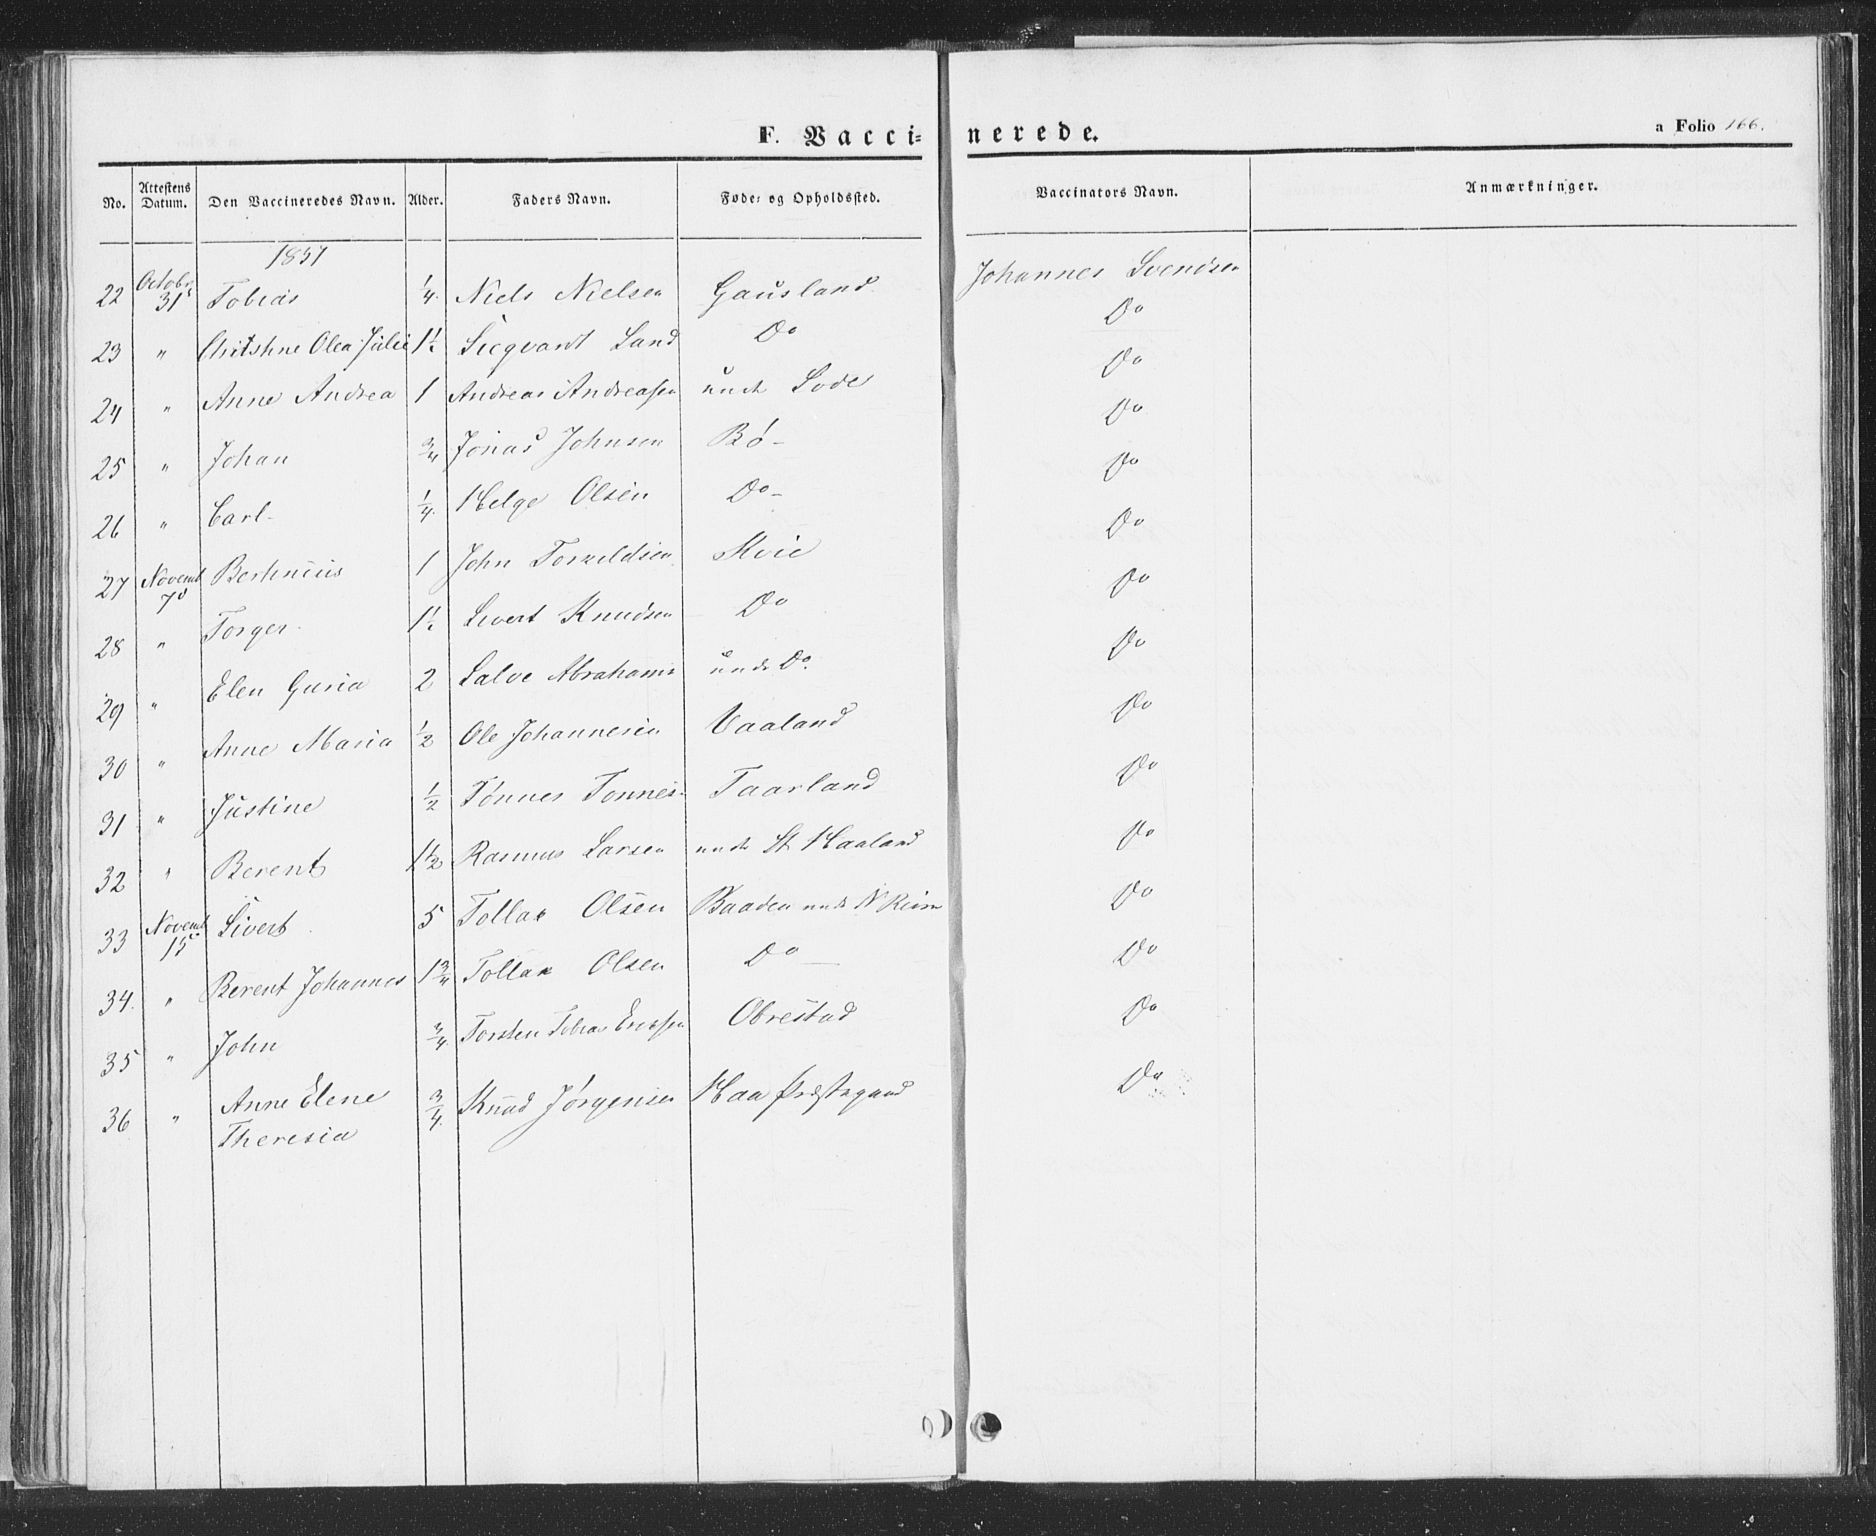 F. Vaccinerede.
a Folio 166.
No. Attestens Datum. Den Vaccineredes Navn. Alder. Faders Navn. Føde= og Opholdssted. Vaccinators Navn. Anmærkninger.
1851
22 Octobr 31 Tobias 1/4 Niels Nielsen Gausland Johannes Svendsen
23 " Olea Julie 1½ Sigvart Land Do Do
24 " Anne Andrea 1 Andreas Andreasen unde Do
25 " Johan 3/4 Jonas Johnsen Bø - Do
26 " Carl - 1/4 Helge Olsen Do - Do
27 Novemb 7 Bertinius 1 John Torkildsen Kvie Do
28 " Torger 1½ Sivert Knudsen Do Do
29 " Elen Guria 2 Salve Abrahams unde Do Do
30 " Anne Maria 1/2 Ole Johannesen Vaaland Do
31 " Justine 1/2 Tønnes Tønnes- Taarland Do
32 " Berent 1½ Rasmus Larsen unde St Haaland Do
33 Novemb 15 Sivert 5 Tollak Olsen Baaden unde N Do
34. " Berent Johannes 1 3/4 Tollak Olsen Do — Do
35 " John 3/4 Torsten Tobias Obrestad Do
36 " Anne Elene 3/4 Knud Jørgensen Haa Præstegaard Do
Theresia